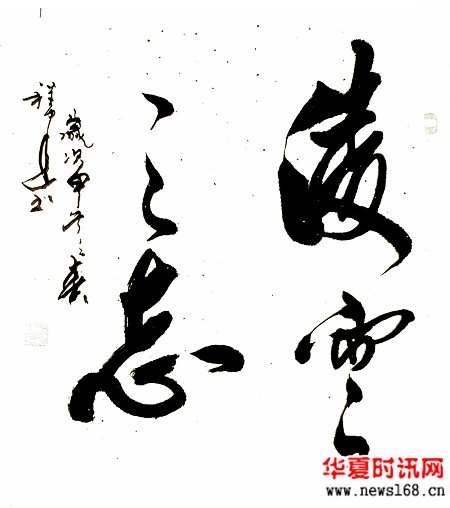 凌雲
之志
歲次甲午之春
华夏时讯网
www.news168.cn